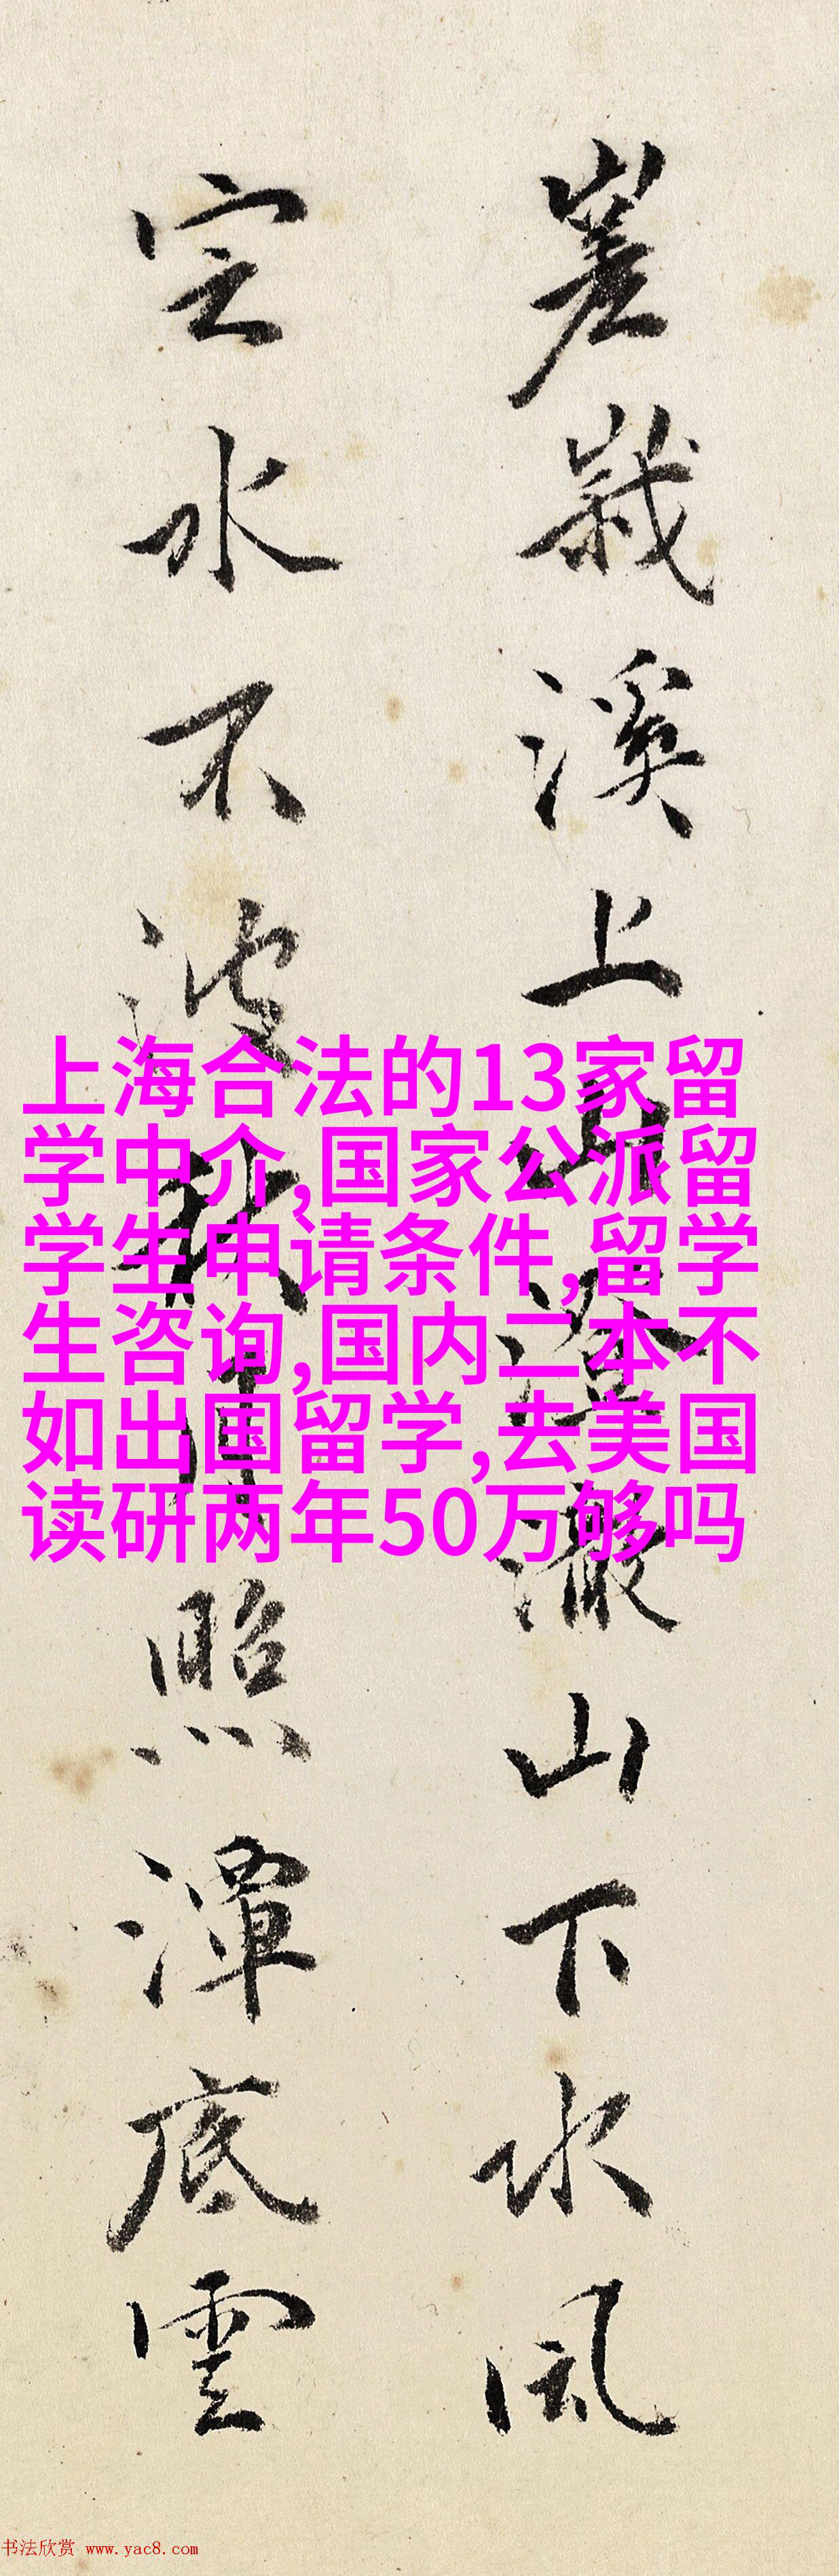 嵳峩溪上山澄澈山下水風
定水不秋月照潭底雲
上海合法的13家留
学中介,国家公派留
学生申请条件,留学
生咨询,国内二本不
如出国留学,去美国
读研两年50万够吗
书法欣赏 www.yac8.com